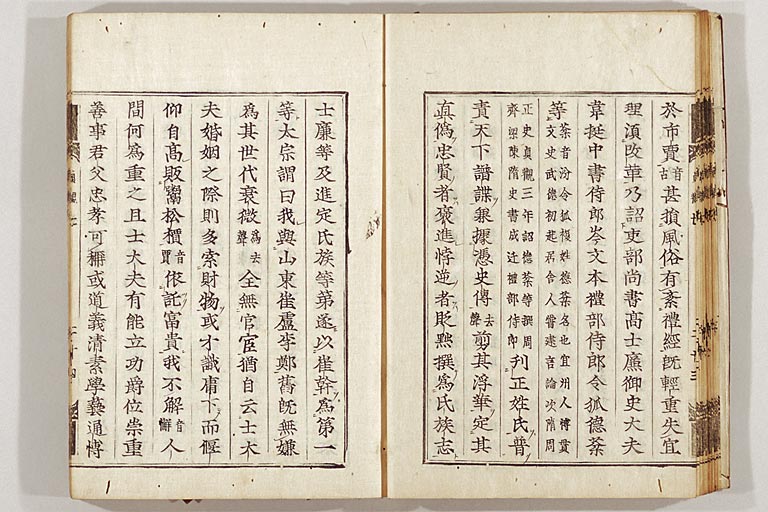 於市賣音古甚損風俗有紊禮經既輕重失宜
理湏改革乃詔吏部尚書高士廉御史大夫
韋挺中書侍郎岑文本禮部侍郎令狐德棻
等棻音汾令狐複姓德棻名也宜州人博貫
文史武德初起居舍人嘗建言論次隋周
正史貞觀三年詔德棻等撰周
齊梁陳隋史書成迁禮部侍郎刋正姓氏普
責天下譜諜兼據憑史傳去聲剪其浮華定其
真偽忠賢者褒進悖逆者貶黜撰爲氏族志
士廉等及進定氏族等第遂以崔幹爲第一
等太宗謂曰我與山東崔盧李鄭舊既無嫌
爲其世代衰微爲去聲全無官宦猶自云士大
夫婚姻之際則多索財物或才識庸下而偃
仰自高販鬻松檟音賈依託富貴我不解音蟹人
間何爲重之且士大夫有能立功爵位崇重
善事君父忠孝可稱或道義清素學藝通博